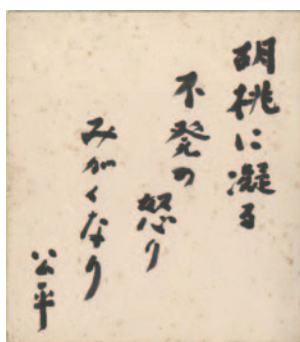 胡桃に凝る
不発の
怒り
みがくなり
公平